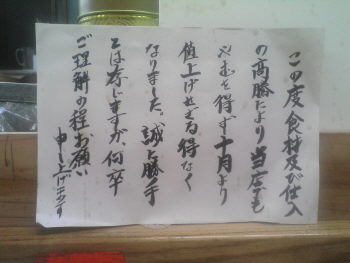 この度食材及び仕入
の高騰により当店でも
やむを得ず十月より
値上げせざる得なく
なりました。誠に勝手
とは存じますが、何卒
ご理解の程お願い
申し上げます